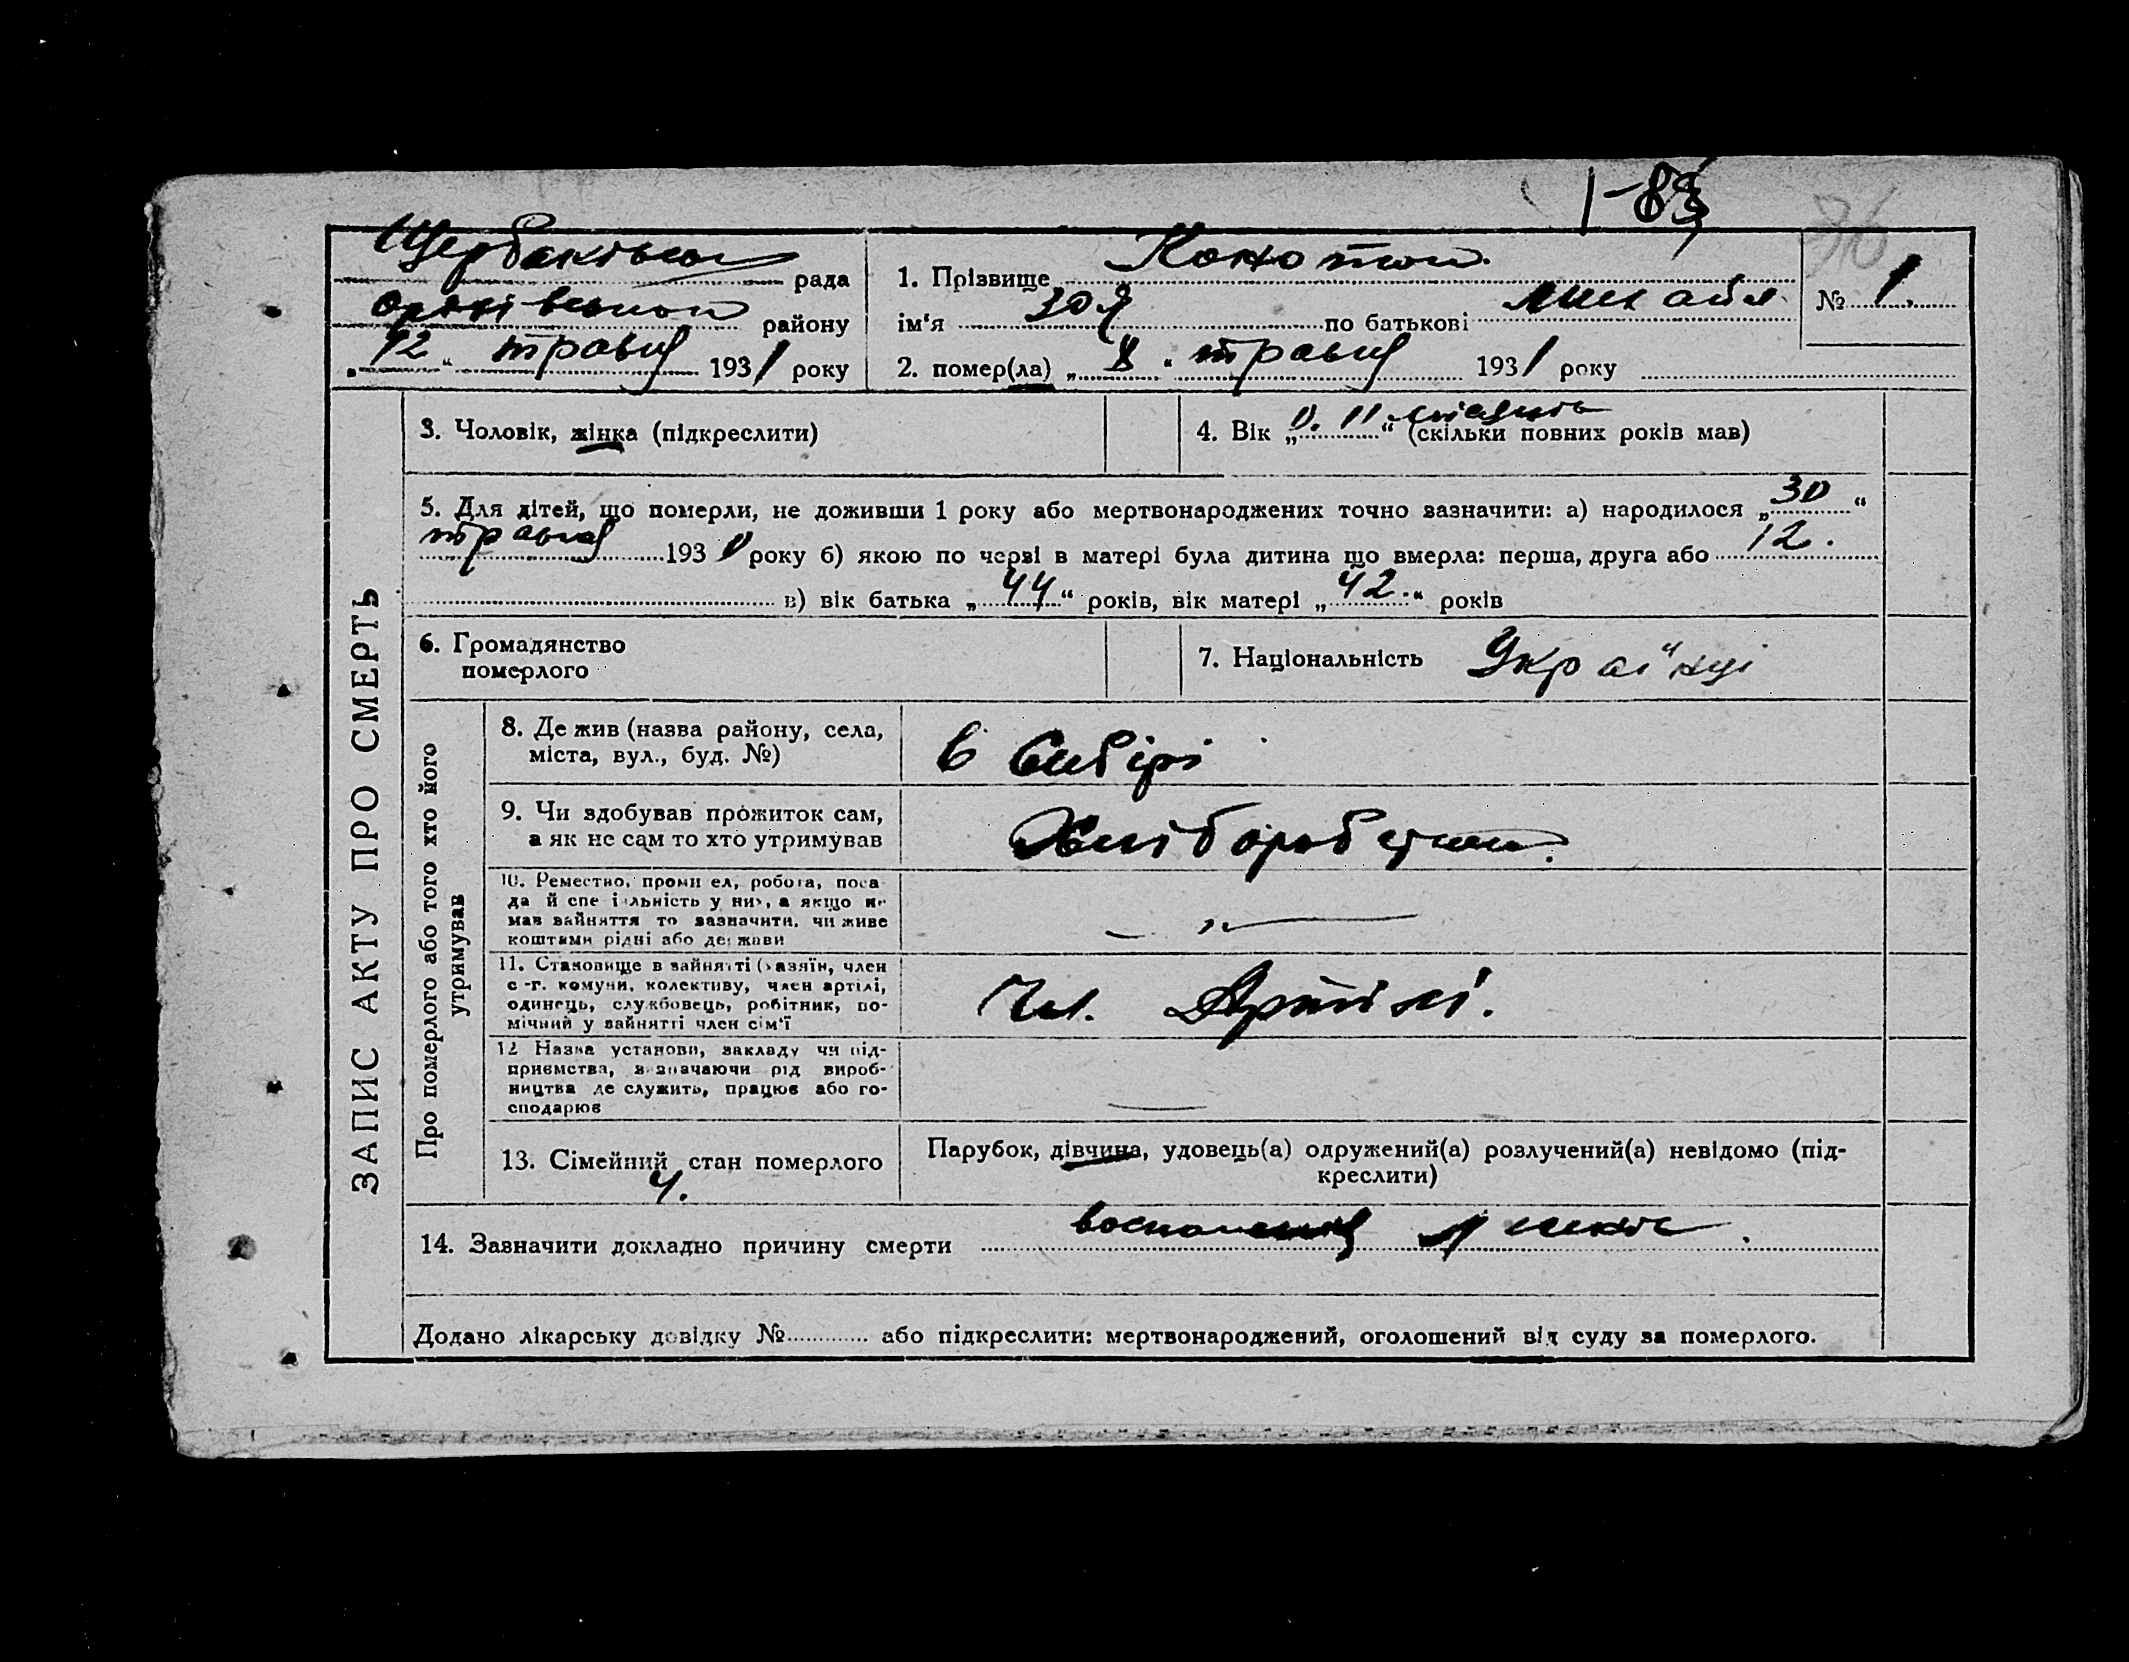 1-83
36
Щербаківська рада
Оріхівського району
„12“ травня 1931 року
1. Прізвище Конотоп.
ім'я Зоя по батькові Михайл.
№ 1.
2. помер(ла) „8“ травня 1931 року
ЗАПИС АКТУ ПРО СМЕРТЬ
3. Чоловік, жінка (підкреслити)
4. Вік „0. 11 місяців“ (скільки повних років мав)
5. Для дітей, що померли, не доживши 1 року або мертвонароджених точно зазначити: а) народилося „30“
травня 1930 року б) якою по черзі в матері була дитина що вмерла: перша, друга або 12.
в) вік батька „44“ років, вік матері „42.“ років
6. Громадянство
померлого
7. Національність Українці
Про померлого або того хто його
утримував
8. Де жив (назва району, села,
міста, вул., буд. №)
в Сибірі
9. Чи здобував прожиток сам,
а як не сам то хто утримував
Хлібороб
10. Реместно, промисел, робота, поса-
да й спеціяльність у них, а якщо не
мав зайняття то зазначити, чи живе
коштами рідні або держави
11. Становище в зайнятті (хазяїн, член
с.-г. комуни, колективу, член артілі,
одинець, службовець, робітник, по-
мічний у зайнятті член сім'ї
Чл. Артілі.
12 Назва установи, закладу чи під-
приємства, зазначаючи рід вироб-
ництва де служить, працює або го-
сподарює
13. Сімейний стан померлого
Ч.
Парубок, дівчина, удовець(а) одружений(а) розлучений(а) невідомо (під-
креслити)
14. Зазначити докладно причину смерти
Додано лікарську довідку № або підкреслити: мертвонароджений, оголошений від суду за померлого.